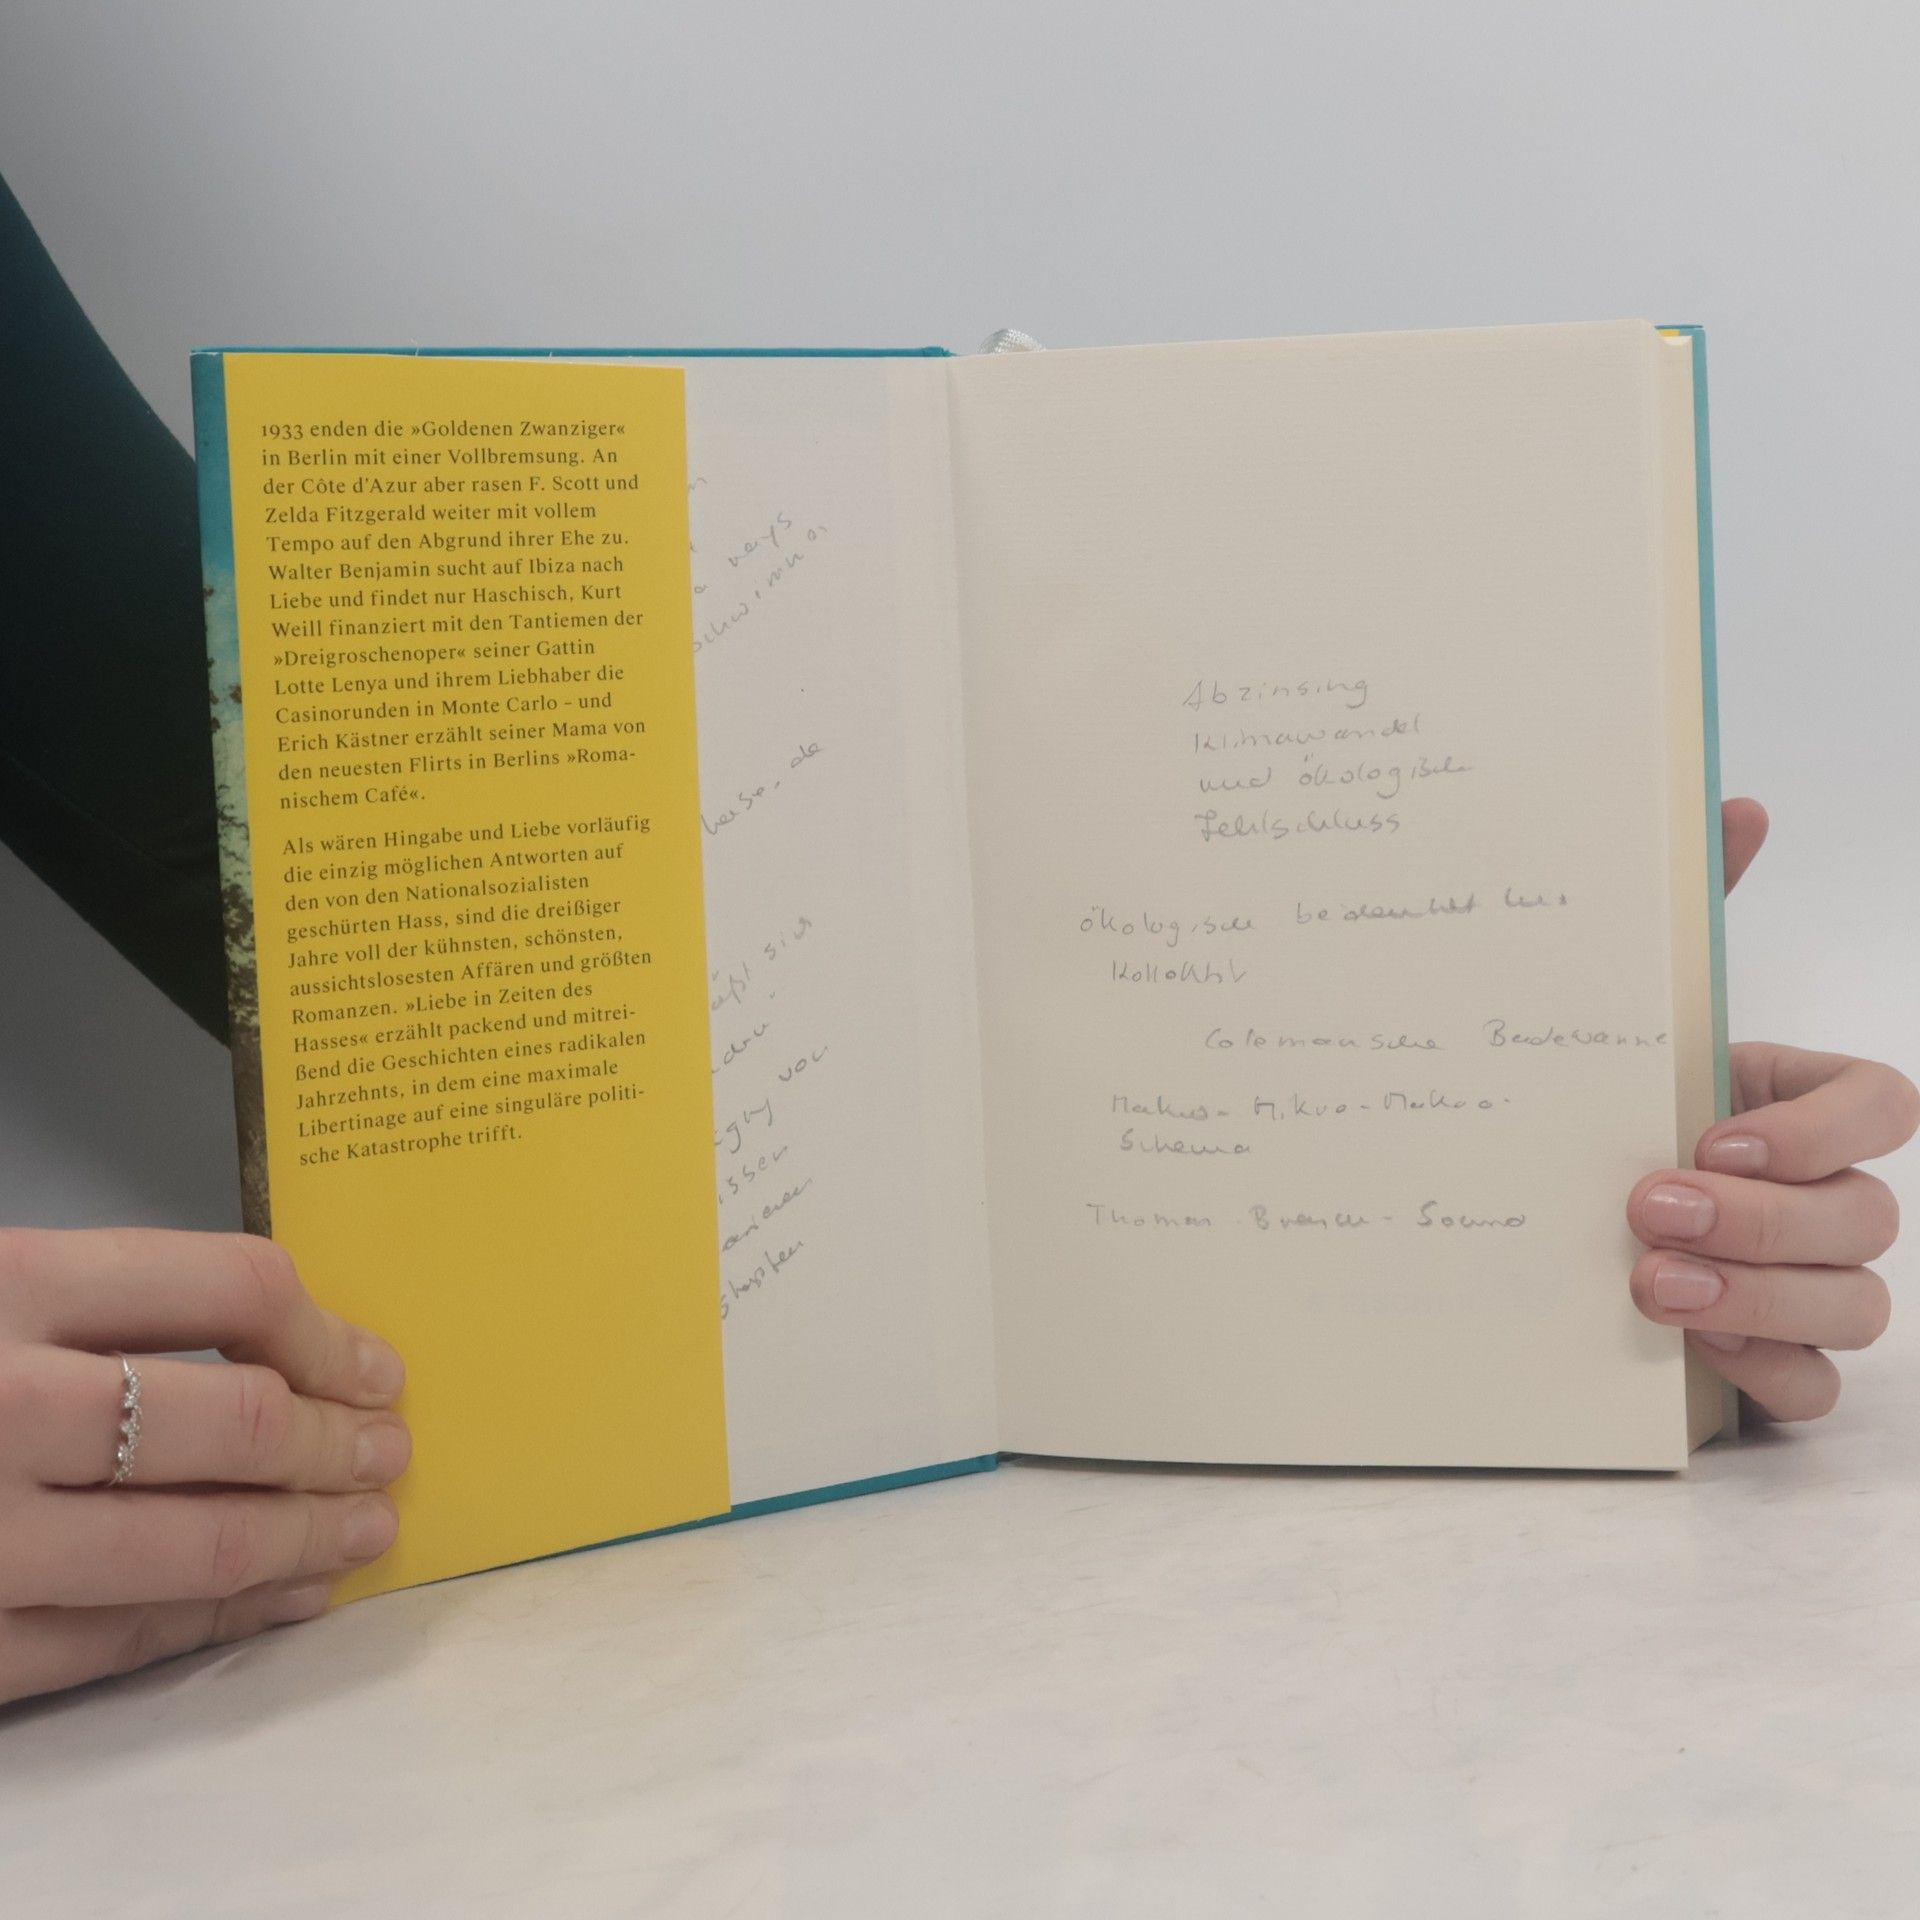 1933 enden die »Goldenen Zwanziger«
in Berlin mit einer Vollbremsung. An
der Côte d'Azur aber rasen F. Scott und
Zelda Fitzgerald weiter mit vollem
Tempo auf den Abgrund ihrer Ehe zu.
Walter Benjamin sucht auf Ibiza nach
Liebe und findet nur Haschisch, Kurt
Weill finanziert mit den Tantiemen der
»Dreigroschenoper« seiner Gattin
Lotte Lenya und ihrem Liebhaber die
Casinorunden in Monte Carlo – und
Erich Kästner erzählt seiner Mama von
den neuesten Flirts in Berlins »Roma-
nischem Café«.
Als wären Hingabe und Liebe vorläufig
die einzig möglichen Antworten auf
den von den Nationalsozialisten
geschürten Hass, sind die dreißiger
Jahre voll der kühnsten, schönsten,
aussichtslosesten Affären und größten
Romanzen. »Liebe in Zeiten des
Hasses« erzählt packend und mitrei-
ßend die Geschichten eines radikalen
Jahrzehnts, in dem eine maximale
Libertinage auf eine singuläre politi-
sche Katastrophe trifft.
sich
vor
Abzinsing
Klimawandel
und ökologische
Fehlschluss
ökologische
Kollektiv
Colemansche Badewanne
Makro-Mikro-Makro-
Schema
Thomas